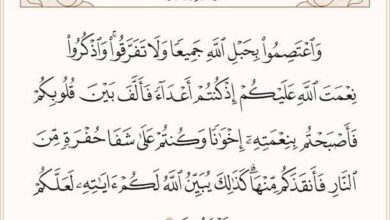 وَٱعْتَصِمُوا۟ بِحَبْلِ ٱللَّهِ جَمِيعًا وَلَا تَفَرَّقُوا۟ۚ وَٱذْكُرُوا۟
نِعْمَتَ ٱللَّهِ عَلَيْكُمْ إِذْ كُنتُمْ أَعْدَآءً فَأَلَّفَ بَيْنَ قُلُوبِكُمْ
فَأَصْبَحْتُم بِنِعْمَتِهِۦٓ إِخْوَٰنًا وَكُنتُمْ عَلَىٰ شَفَا حُفْرَةٍ مِّنَ
ٱلنَّارِ فَأَنقَذَكُم مِّنْهَاۗ كَذَٰلِكَ يُبَيِّنُ ٱللَّهُ لَكُمْ ءَايَٰتِهِۦ لَعَلَّكُمْ